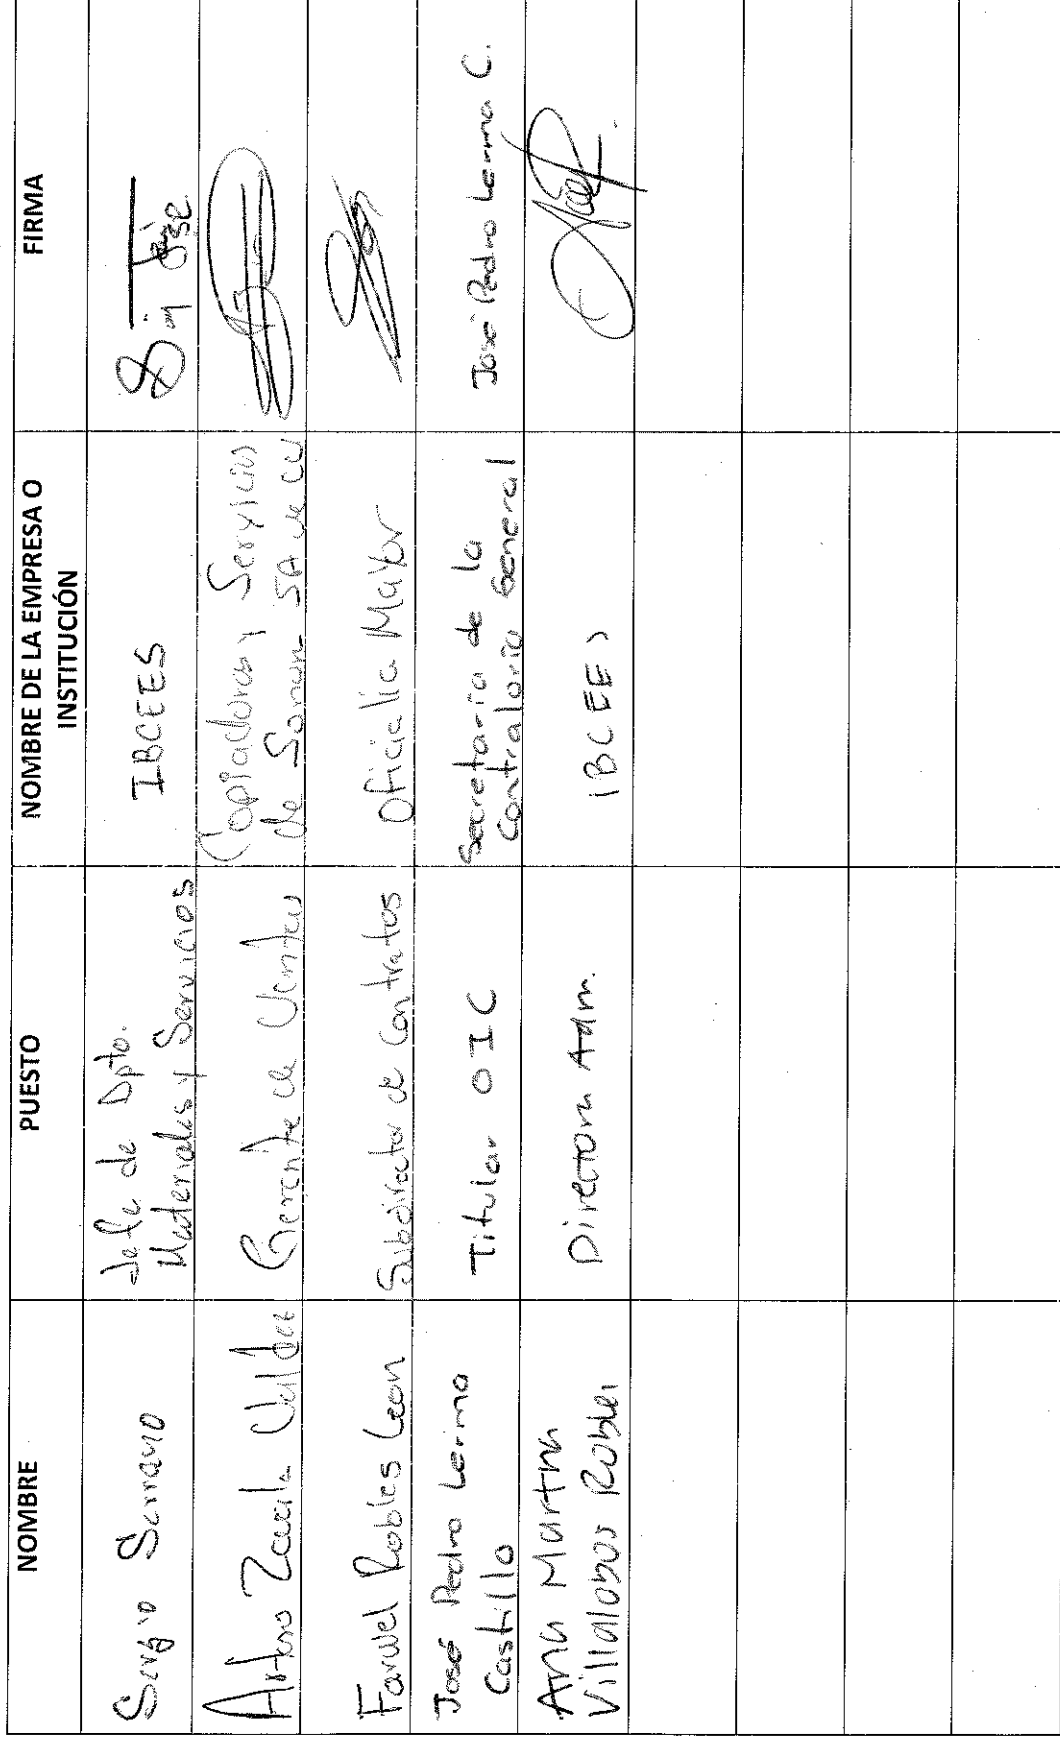 NOMBRE
PUESTO
NOMBRE DE LA EMPRESA O
INSTITUCIÓN
FIRMA
Sergio Serrano
Jefe de Dpto.
Materiales y Servicios
IBCEES
Arturo Zavala Valdez
Gerente de Ventas
Copiadoras y Servicios
de Sonora SA de CV
Robles Leon
Subdirector de Contratos
Oficialía Mayor
José Pedro Lerma
Castillo
Titular OIC
Secretaría de la
Contraloría General
José Pedro Lerma C.
Ana Martha
Villalobos Robles
Directora Adm.
IBCEES